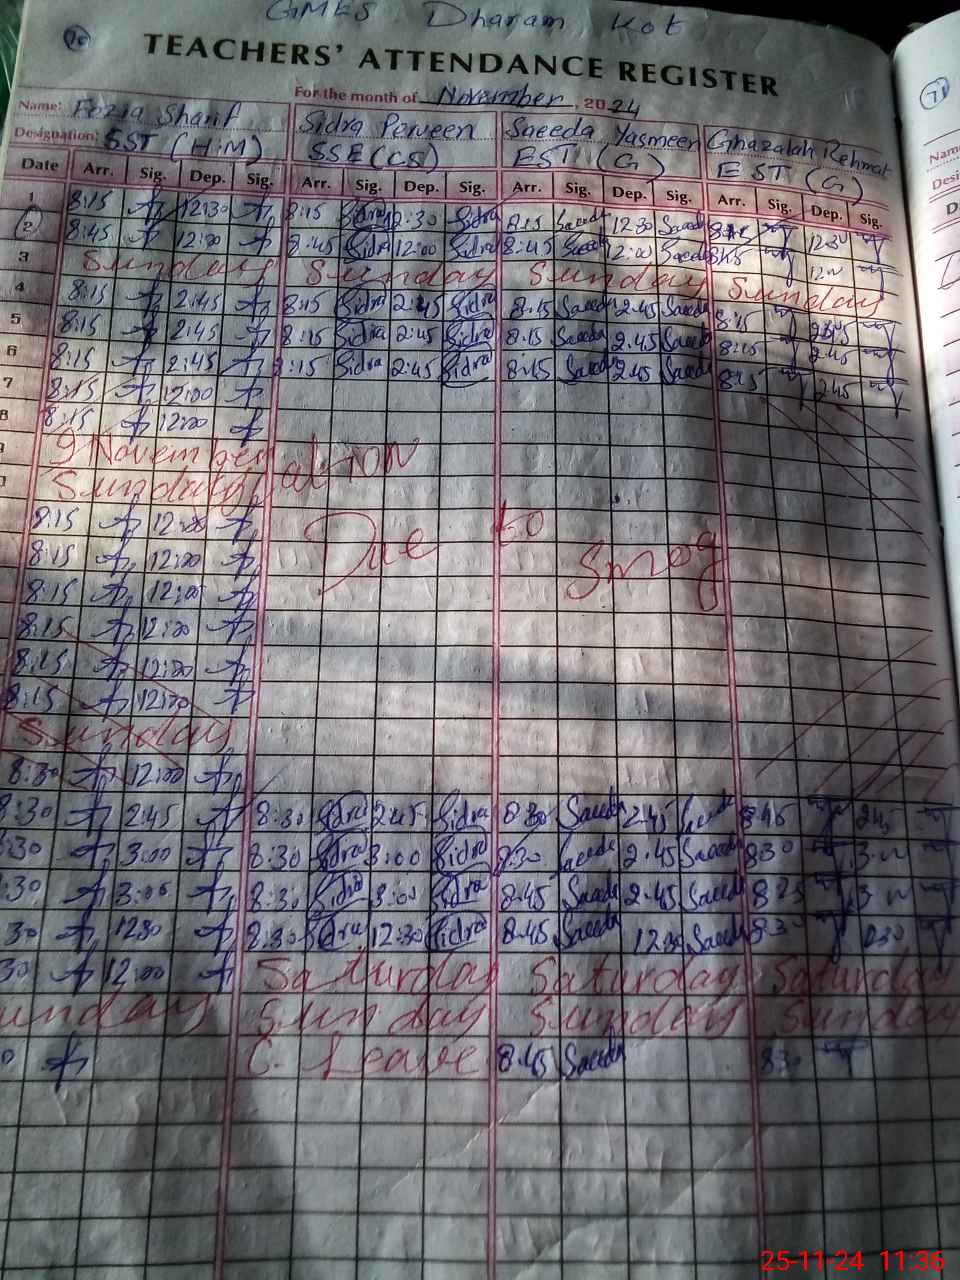 GMES Dharam Kot
TEACHERS' ATTENDANCE REGISTER
For the month of November, 2024
Name: Fozia Sharif Sidra Perveen Saeeda Yasmeen Ghazalah Rehmat
Designation: SST (H.M) SSE (CS) EST (G) EST (G)
Date Arr. Sig. Dep. Sig. Arr. Sig. Dep. Sig. Arr. Sig. Dep. Sig. Arr. Sig. Dep. Sig.
1 8:15 12:30 8:15 Sidra 12:30 Sidra 8:15 Saeeda 12:30 Saeeda 12:30
2 8:45 12:00 8:45 Sidra 12:00 Sidra 8:45 Saeeda 12:00 Saeeda
3 Sunday Sunday Sunday Sunday
4 8:15 2:45 8:15 Sidra 2:45 Sidra 8:15 Saeeda 2:45 Saeeda 8:15 2:45
5 8:15 2:45 8:15 Sidra 2:45 Sidra 8:15 Saeeda 2:45 Saeeda 8:15 2:45
6 8:15 2:45 8:15 Sidra 2:45 Sidra 8:15 Saeeda 2:45 Saeeda 8:15 2:45
7 8:15 12:00
8 8:15 12:00
9 November
Sunday
8:15 12:00
Due to Smog
8:15 12:00
8:15 12:00
8:15 12:00
8:15 12:00
8:15 12:00
Sunday
8:30 12:00
8:30 2:45 8:30 Sidra 2:45 Sidra 8:30 Saeeda 2:45 Saeeda 8:45 2:45
:30 3:00 8:30 Sidra 3:00 Sidra 8:30 Saeeda 2:45 Saeeda 8:30
:30 3:00 8:30 Sidra 3:00 Sidra 8:45 Saeeda 2:45 Saeeda
30 12:30 8:30 Sidra 12:30 Sidra 8:45 Saeeda 12:30 Saeeda 8:30
30 12:00 Saturday Saturday Saturday
unday Sunday Sunday Sunday
C. Leave 8:45 Saeeda 8:30
25-11-24 11:36